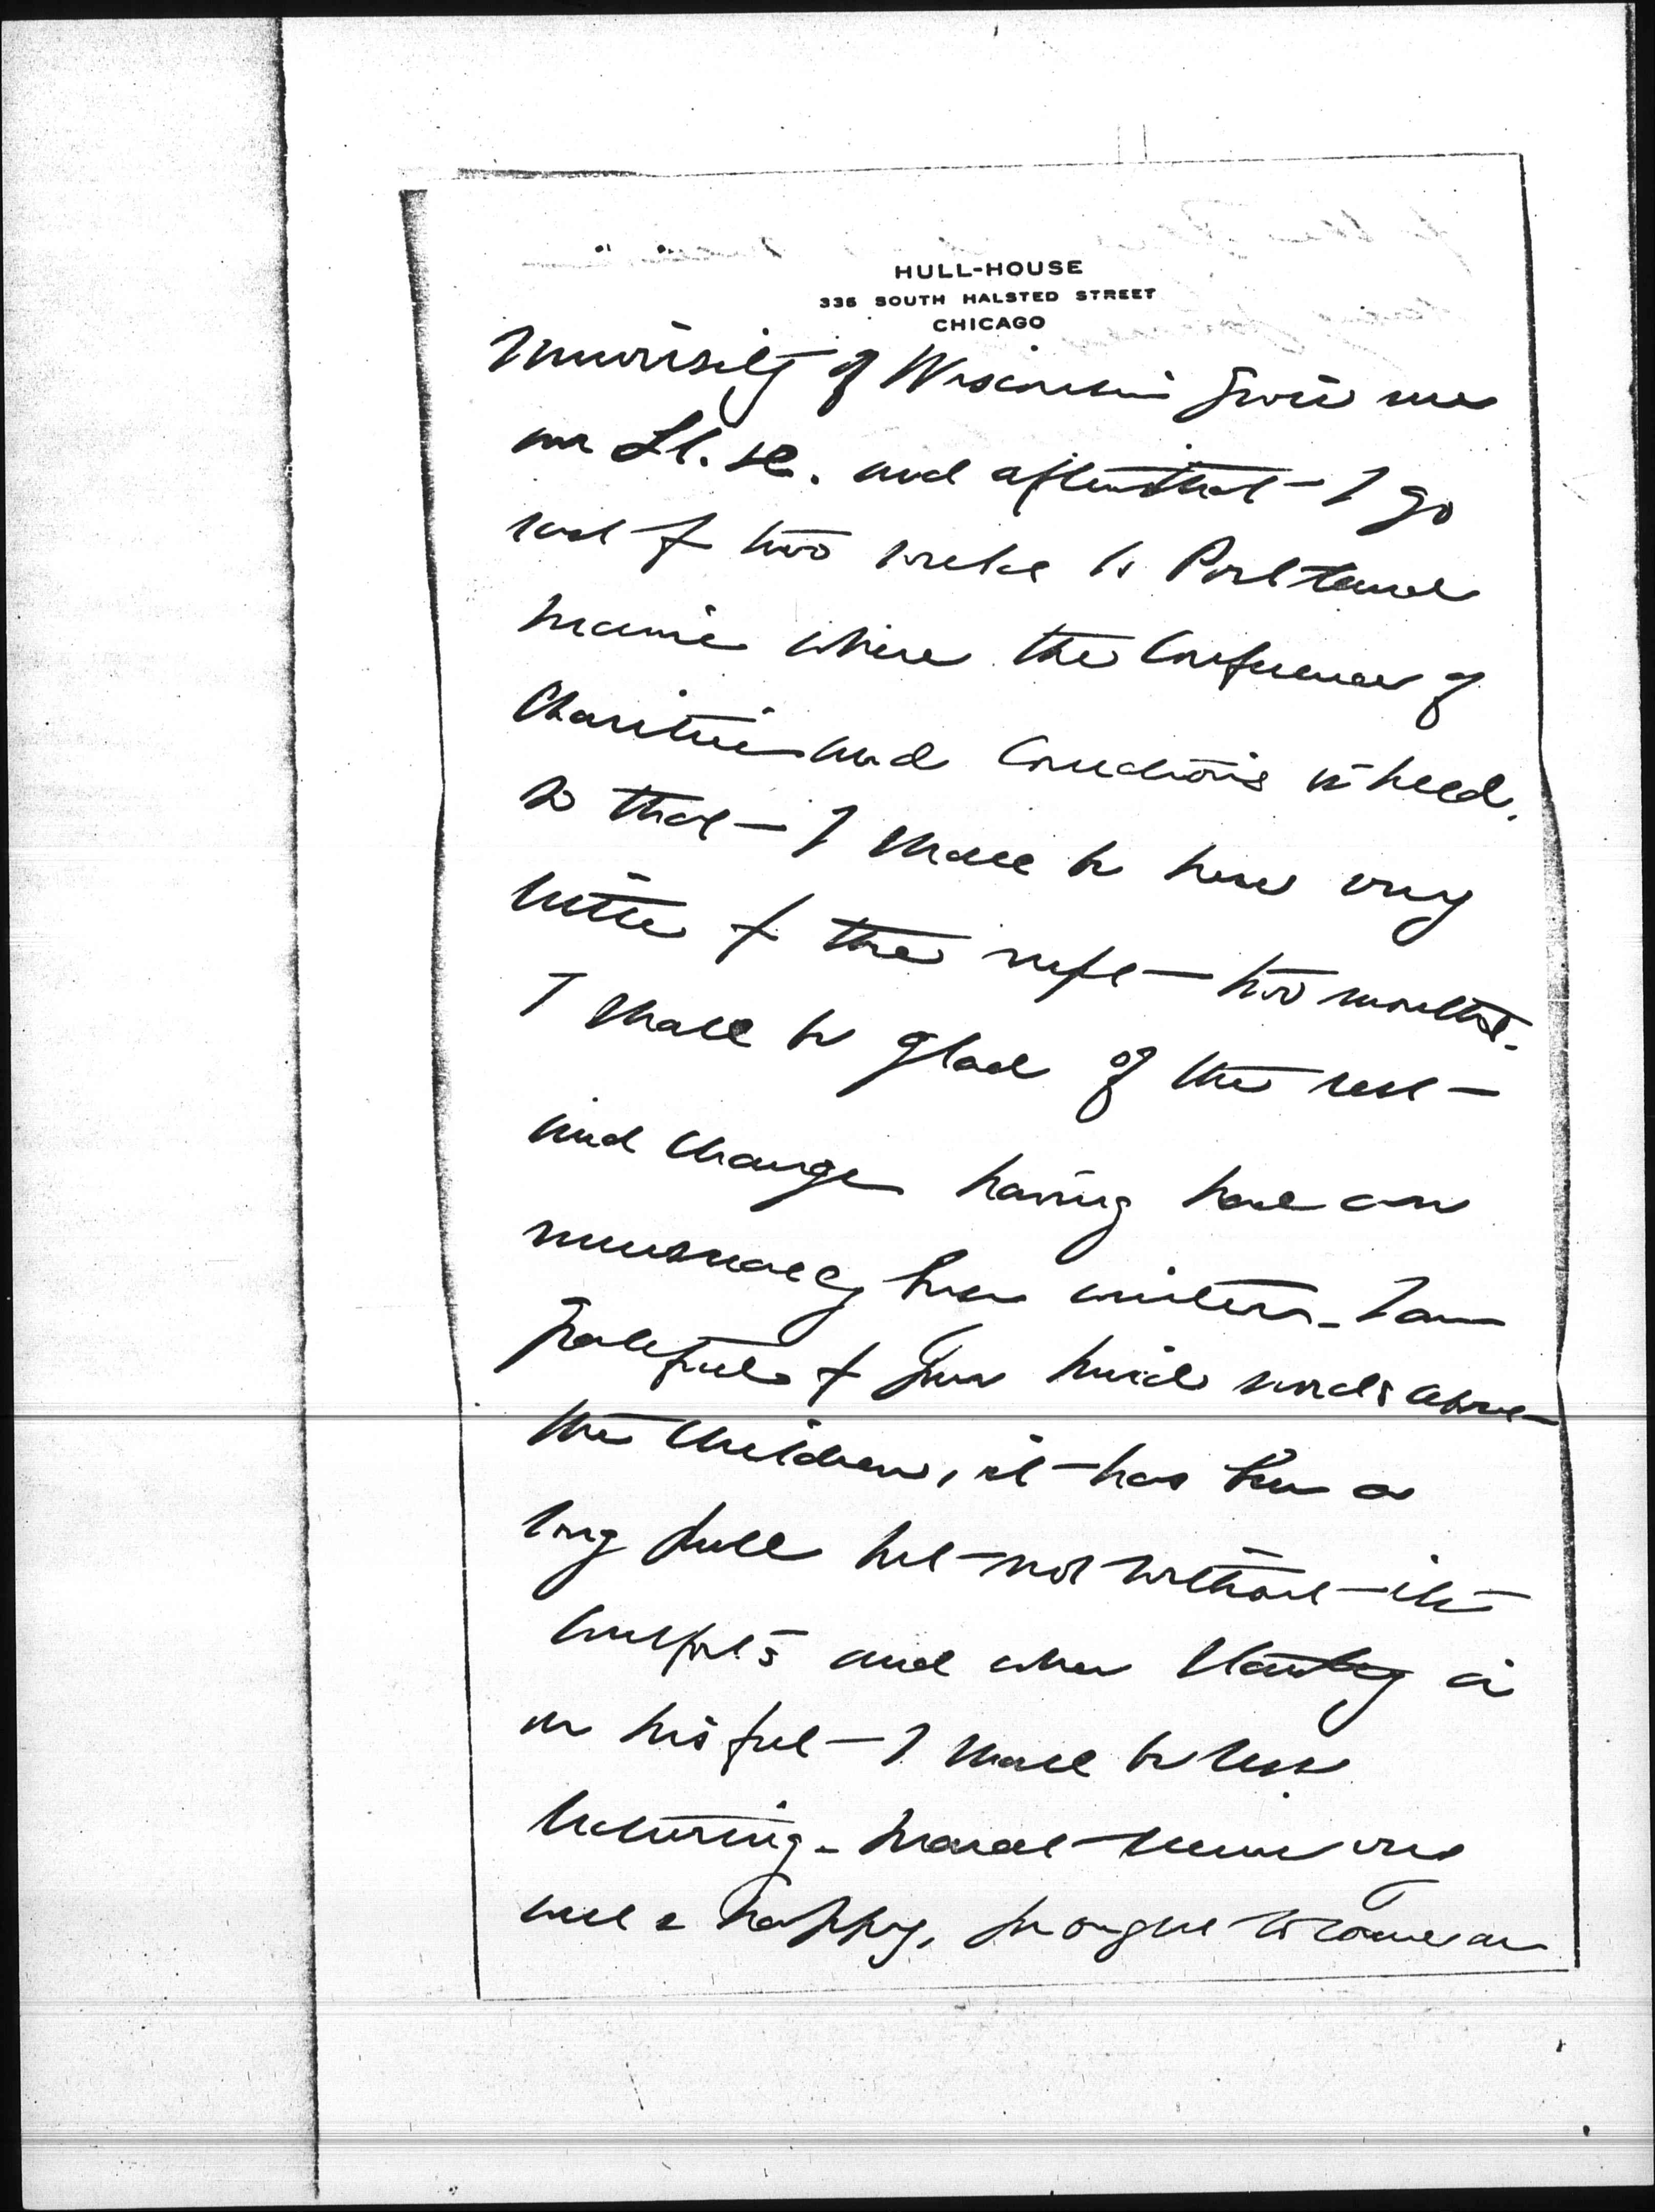 HULL-HOUSE
335 SOUTH HALSTED STREET
CHICAGO
University of Wisconsin gives me
an LL.D. and after that I go
east for two weeks to Portland
Maine where the Conference of
Charities and Corrections is held.
So that I shall be here very
little for the next two months.
I shall be glad of the rest
and change having had an
unusually busy winter. I am
grateful for your kind words about
the children, it has been a
long pull but not without its
comforts and when Stanley is
on his feet I shall be less
lecturing. Marcet seems very
well & happy,